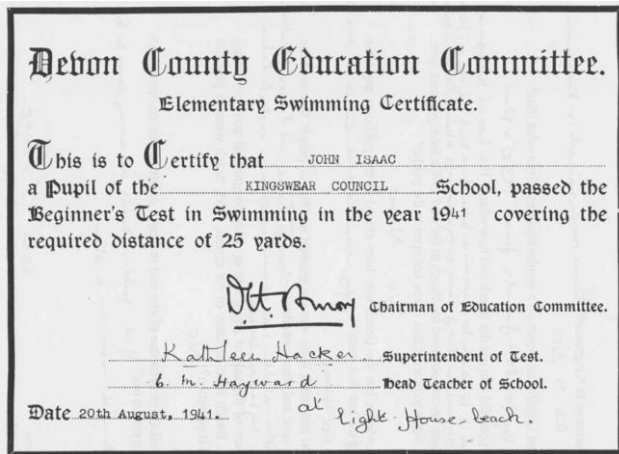 Devon County Education Committee.
Elementary Swimming Certificate.
This is to Certify that JOHN ISAAC
a Pupil of the KINGSWEAR COUNCIL School, passed the
Beginner's Test in Swimming in the year 1941 covering the
required distance of 25 yards.
Chairman of Education Committee.
Kathleen Hacker. Superintendent of Test.
E. M. Hayward Head Teacher of School.
Date 20th August, 1941. at Light House beach.